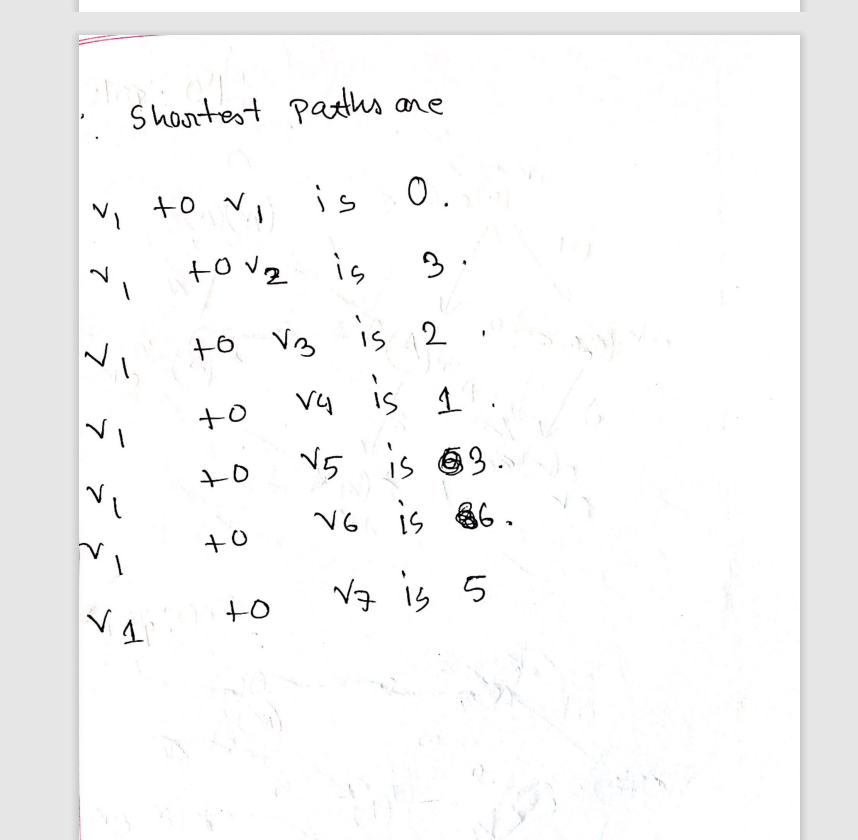 ∴ Shortest paths are
v1 to v1 is 0.
v1 to v2 is 3.
v1 to v3 is 2.
v1 to v4 is 1.
v1 to v5 is 3.
v1 to v6 is 6.
v1 to v7 is 5